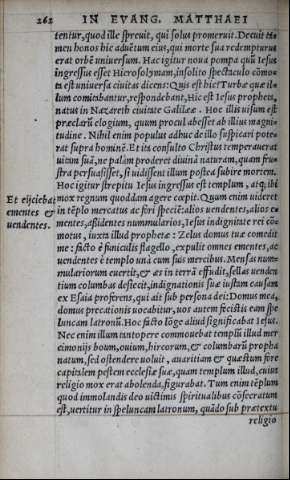 262 IN EVANG. MATTHAEI
tentur, quod ille spreuit, qui solus promeruit. Decuit ta
men honos hic aduẽtum eius, qui morte sua redempturus
erat orbẽ uniuersum. Hac igitur noua pompa quũ Iesus
ingressus esset Hierosolymam, insolito spectaculo cõmo-
ta est uniuersa ciuitas dicens: Quis est hic? Turbæ quæ il-
lum comitabantur, respondebant, Hic est Iesus propheta,
natus in Nazareth ciuitate Galilææ. Hoc illis uisum est
præclarũ elogium, quum procul abesset ab illius magni-
tudine. Nihil enim populus adhuc de illo suspicari pote-
rat supra hominẽ. Et ita consulto Christus temperauerat
uitam suã, ne palàm proderet diuinã naturam, quam fru-
stra persuasisset, si uidissent illum postea subire mortem.
Hoc igitur strepitu Iesus ingressus est templum, atq; ibi
Et eijciebat mox regnum quoddam agere cœpit. Quum enim uideret
ementes & in tẽplo mercatus ac fori speciẽ: alios uendentes, alios e-
uendentes. mentes, aßidentes nummularios, Iesus indignitate rei cõ-
motus, iuxta illud prophetæ: Zelus domus tuæ comedit
me: facto è funiculis flagello, expulit omnes ementes, ac
uendentes è templo unà cum suis mercibus. Mensas num-
mulariorum euertit, & æs in terrã effudit, sellas uenden
tium columbas desiecit, indignationis suæ iustam causam
ex Esaia proferens, qui ait sub persona dei: Domus mea,
domus precationis uocabitur, uos autem fecistis eam spe
luncam latronũ. Hoc facto lõge aliud significabat Iesus.
Nec enim illum tantopere commouebat templũ illud mer
cimonijs boum, ouium, hircorum, & columbarũ propha
natum, sed ostendere uoluit, auaritiam & quæstum fore
capitalem pestem ecclesiæ suæ, quam templum illud, cuius
religio mox erat abolenda, figurabat. Tum enim tẽplum
quod immolandis deo uictimis spiritualibus cõsecratum
est, uertitur in speluncam latronum, quãdo sub prætextu
religio